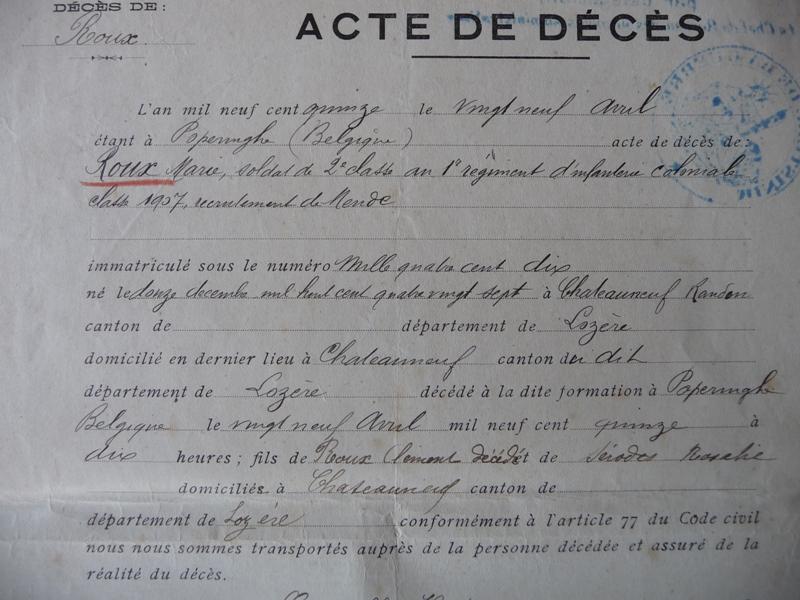 DÉCÈS DE :
Roux.
ACTE DE DÉCÈS
L'an mil neuf cent quinze le vingt neuf Avril
étant à Poperinghe (Belgique) acte de décès de :
Roux Marie, soldat de 2e classe au 1er régiment d'infanterie coloniale
classe 1907, recrutement de Mende
immatriculé sous le numéro Mille quatre cent dix
né le douze decembre mil huit cent quatre vingt sept à Chateauneuf Randon
canton de département de Lozère
domicilié en dernier lieu à Chateauneuf canton du dit
département de Lozère décédé à la dite formation à Poperinghe
Belgique le vingt neuf Avril mil neuf cent quinze à
dix heures ; fils de Roux Clément décédé et de Rosalie
domiciliés à Chateauneuf canton de
département de Lozère conformément à l'article 77 du Code civil
nous nous sommes transportés auprès de la personne décédée et assuré de la
réalité du décès.